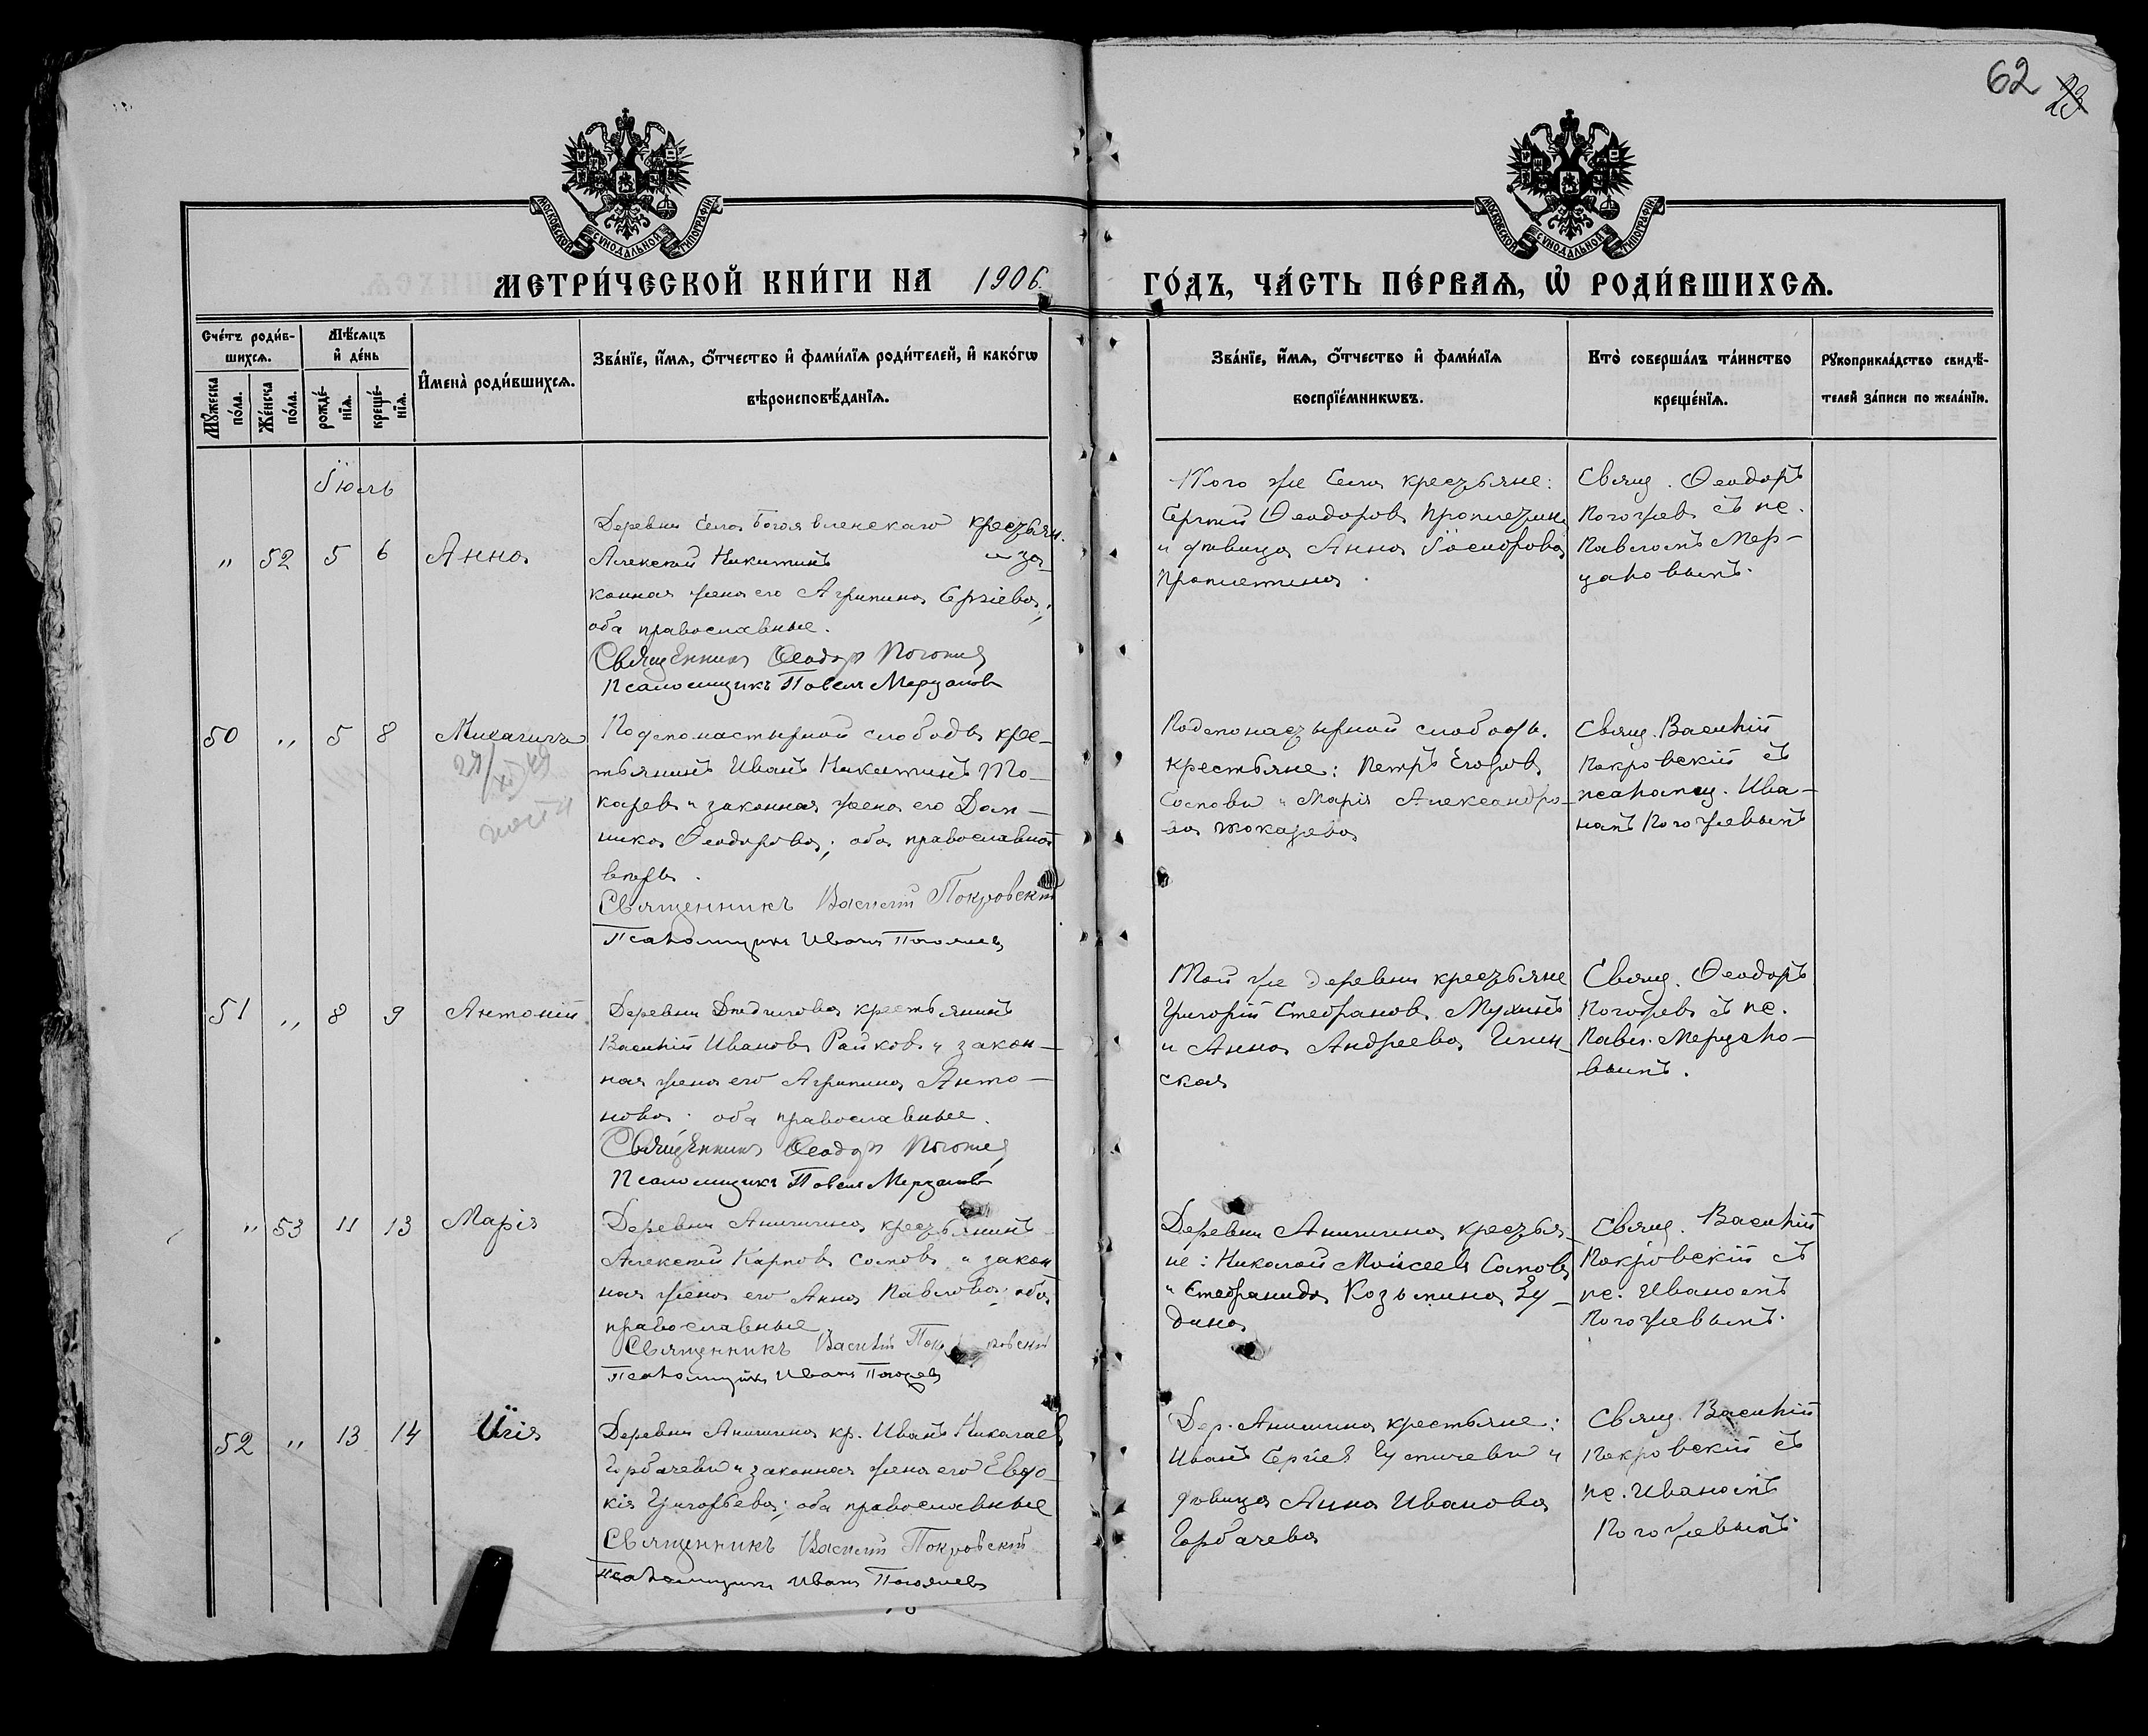 62 23
МОСКОВСКОЙ СѴНОДАЛЬНОЙ ТИПОГРАФІИ
МОСКОВСКОЙ СѴНОДАЛЬНОЙ ТИПОГРАФІИ
МЕТРИ́ЧЕСКОЙ КНИ́ГИ НА 1906.
ГО́ДЪ, ЧА́СТЬ ПЕ́РВАѦ, Ѡ҆ РОДИ́ВШИХСѦ.
Сче́тъ роди́в-
шихсѧ.
Мѣ́сѧцъ
и҆ де́нь
Мꙋ́жеска по́ла.
Же́нска по́ла.
рожде́-
нїѧ.
креще́-
нїѧ.
И҆мена̀ роди́вшихсѧ.
Зва́нїе, и҆́мѧ, ѻ҆́тчество и҆ фами́лїѧ роди́телей, и҆ како́гѡ
вѣроисповѣ́данїѧ.
Зва́нїе, и҆́мѧ, ѻ҆́тчество и҆ фами́лїѧ
воспрїе́мникѡвъ.
Кто̀ соверша́лъ та́инство
креще́нїѧ.
Рꙋкоприкла́дство свидѣ́-
телей за́писи по жела́нїю.
Іюль
" 52 5 6 Анна
Деревни Села Богоявленскаго крестьян.
Алексѣй Никитинъ и за-
конная жена его Агрипина Сергіева;
оба православные.
Священникъ Ѳеодоръ Погожев
Псаломщикъ Павелъ Мерцалов
Того же Села крестьяне:
Сергѣй Ѳеодоровъ
и дѣвица Анна
Свящ. Ѳеодоръ
Погожевъ съ пс.
Павломъ Мер-
цаловымъ.
50 " 5 8 Михаилъ
Подмонастырной слободы крес-
тьянинъ Иванъ Никитинъ То-
каревъ и законная жена его Дом-
ника Ѳеодорова; оба православной
вѣры.
Священникъ Василій Покровскій
Псаломщикъ Иванъ Погожевъ
Подмонастырной слободы.
крестьяне: Петръ Егоровъ
Сомовъ и Марія Александро-
ва Токарева
Свящ. Василій
Покровскій съ
псаломщ. Ива-
номъ Погожевымъ
51 " 8 9 Антоній
Деревни Дѣдилова крестьянинъ
Василій Ивановъ Райковъ и закон-
ная жена его Агрипина Анто-
нова. оба православные.
Священникъ Ѳеодоръ Погожев
Псаломщикъ Павелъ Мерцалов
Той же деревни крестьяне
Григорій Стефановъ Мухинъ
и Анна Андреева
ская
Свящ. Ѳеодоръ
Погожевъ съ пс.
Павл. Мерцало-
вымъ.
" 53 11 13 Марія
Деревни Анишина крестьянинъ
Алексѣй Карповъ Сомовъ и закон
ная жена его Анна Павлова; оба
православные
Священникъ Василій Покровскій
Псаломщикъ Иванъ Погожевъ
Деревни Анишина крестья-
не: Николай Моисеевъ Сомовъ
и Стефанида Козьмина
Свящ. Василій
Покровскій съ
пс. Иваномъ
Погожевымъ.
52 " 13 14 Илія
Деревни Анишина кр. Иванъ Николаевъ
Горбачевъ и законная жена его Евдо-
кія Григорьева; оба православные
Священникъ Василій Покровскій
Псаломщикъ Иванъ Погожевъ
Дер. Анишина крестьяне:
Иванъ Сергѣевъ и
дѣвица Анна Иванова
Горбачева
Свящ. Василій
Покровскій съ
пс. Иваномъ
Погожевымъ